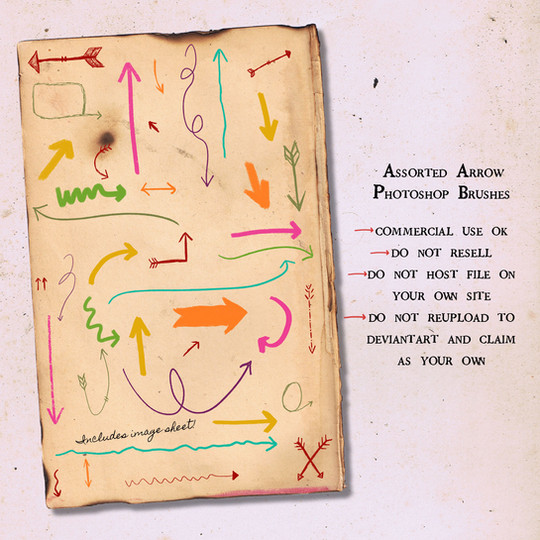 Assorted Arrow
Photoshop Brushes
commercial use ok
do not resell
do not host file on
your own site
do not reupload to
deviantart and claim
as your own
Includes image sheet!